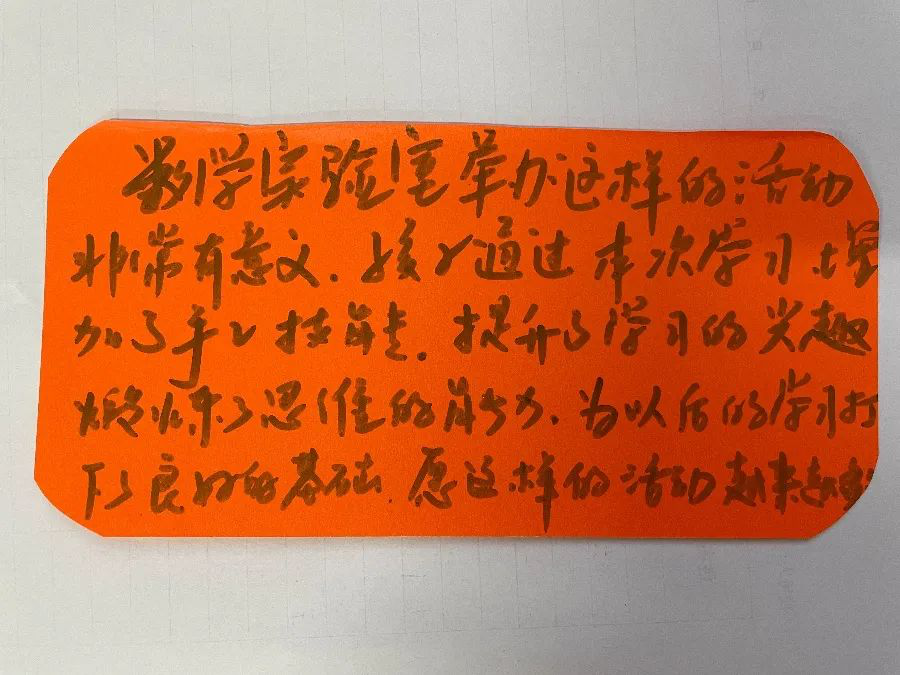 数学实验室举办这样的活动
非常有意义.孩子通过本次学习增
加了手工技能.提升了学习的兴趣
锻炼了思维的能力.为以后的学习打
下了良好的基础.愿这样的活动越来越